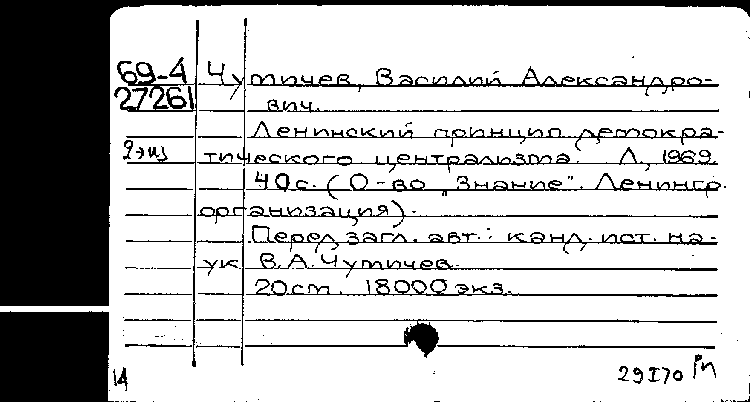 69-4 Чутичев, Василий Александро-
27261 вич.
Ленинский принцип демокра-
2 экз тического централизма. Л., 1969.
40с. (О-во „Знание". Ленингр.
организация).
Перед загл. авт.: канд. ист. на-
ук В.А. Чутичев.
20см. 18000 экз.
14 29 I 70